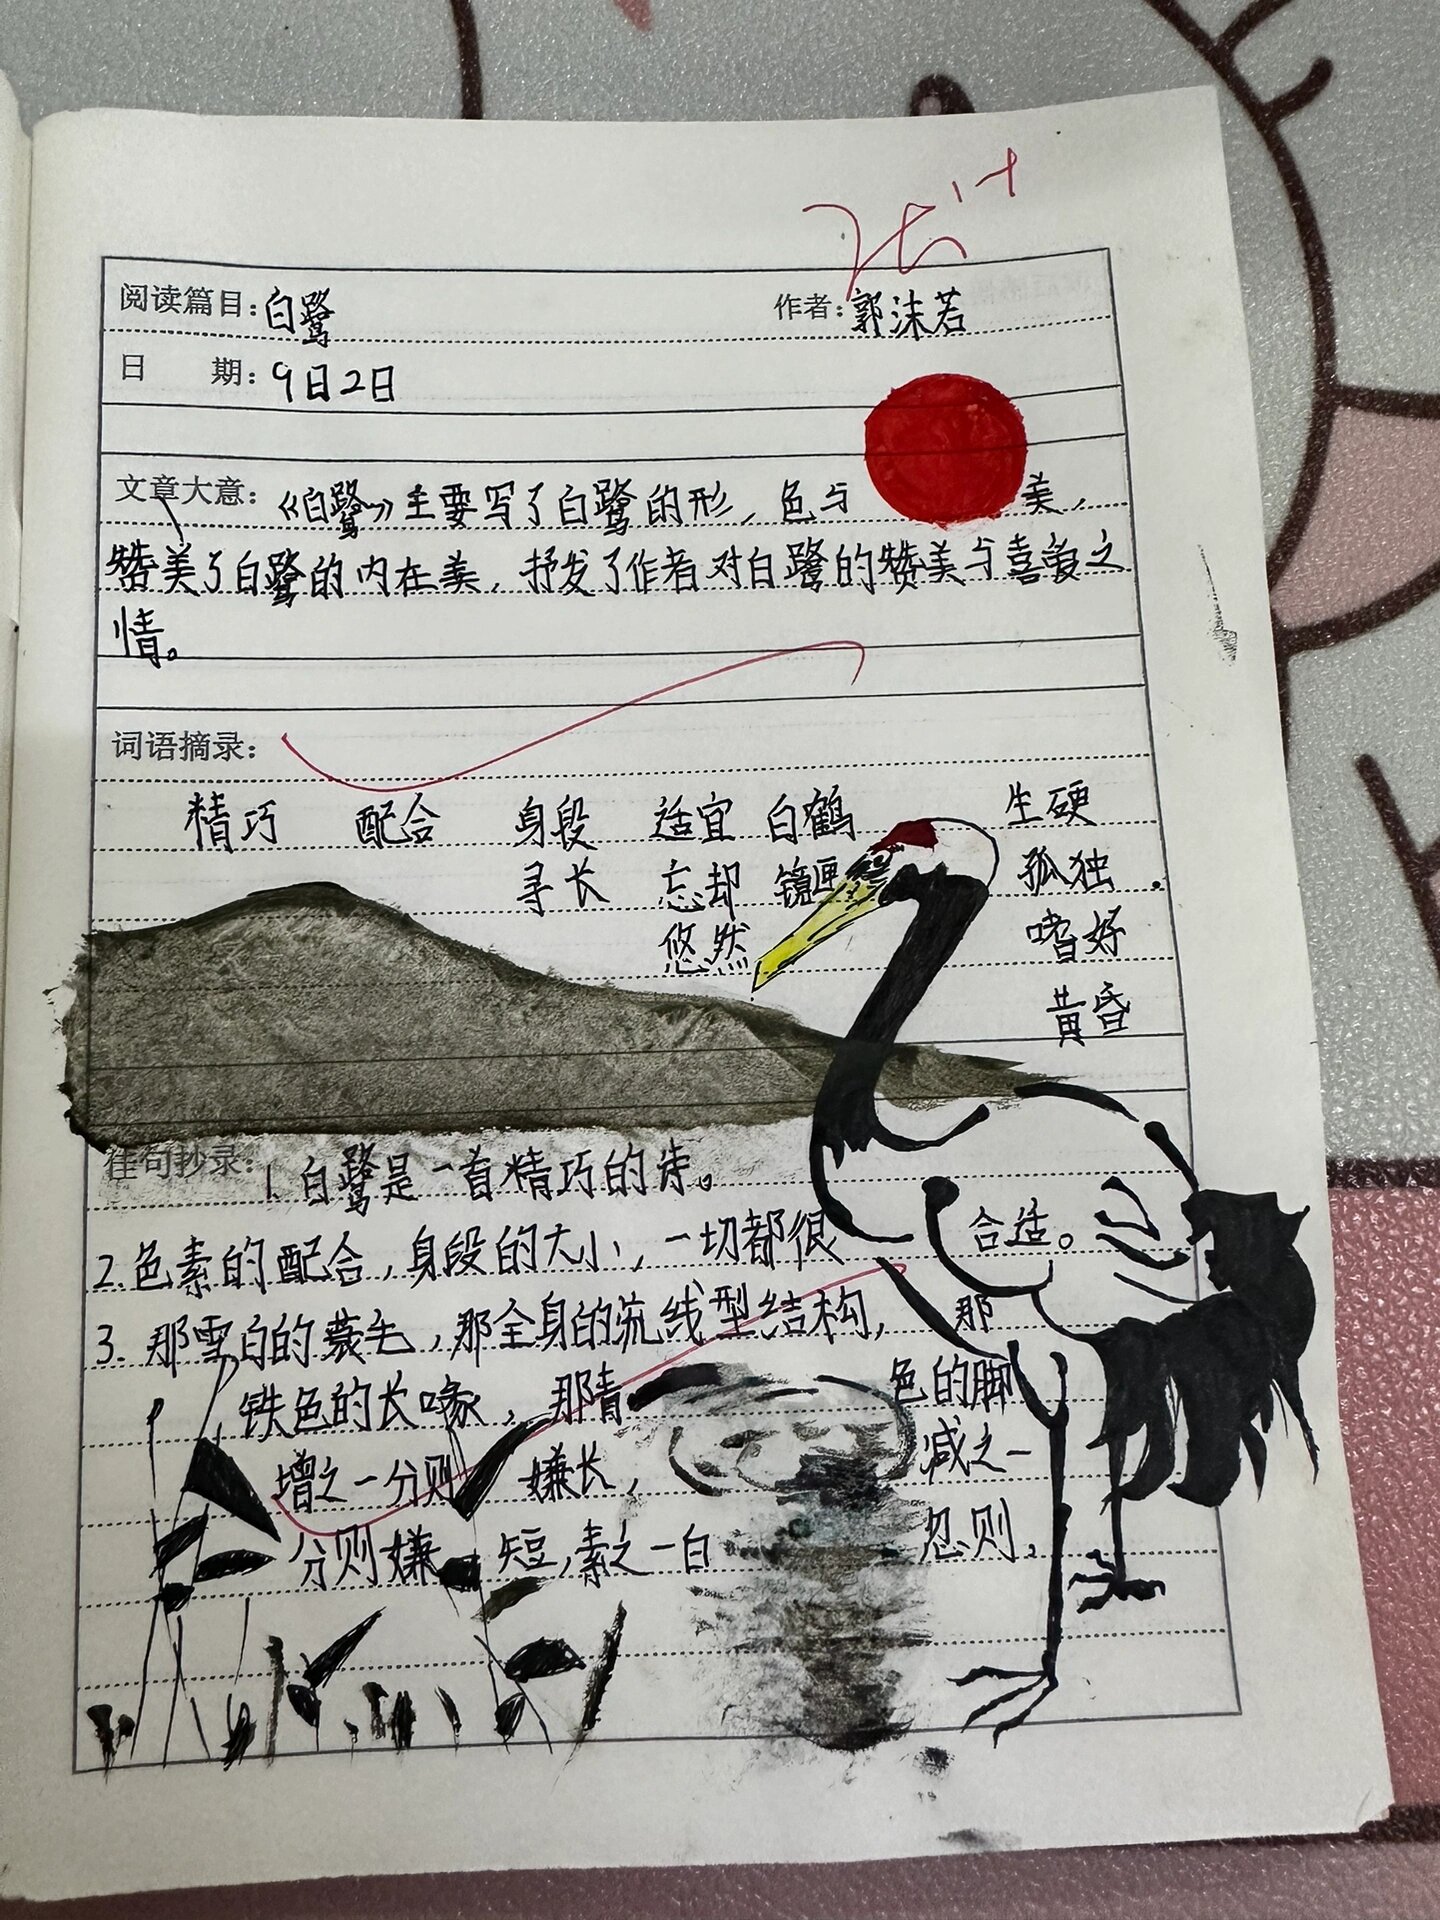 阅读篇目：白鹭 作者：郭沫若
日 期：9日2日
文章大意：《白鹭》主要写了白鹭的形，色与 美，
赞美了白鹭的内在美，抒发了作者对白鹭的赞美与喜爱之
情。
词语摘录：
精巧 配合 身段 适宜 白鹤 生硬
寻长 忘却 镜匣 孤独
悠然 嗜好
黄昏
佳句抄录：1.白鹭是一首精巧的诗。
2.色素的配合，身段的大小，一切都很 合适。
3.那雪白的蓑毛，那全身的流线型结构， 那
铁色的长喙，那青 色的脚
增之一分则 嫌长， 减之一
分则嫌 短，素之一白 忍则，